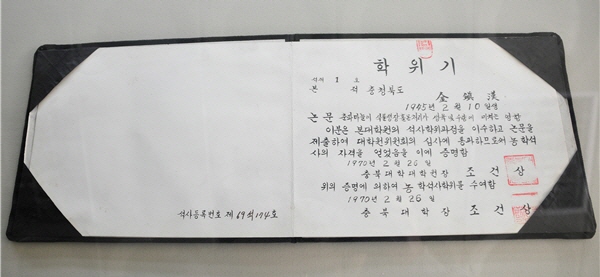 석사등록번호 제 69석 174호
학 위 기
석사 1 호
본 적 충청북도
金 鎭 漢
1945년 2월 10일생
논문 미치는 영향
이분은 본대학원의 석사학위과정을 이수하고 논문을
제출하여 대학원위원회의 심사에 통과하므로써 농학석
사의 자격을 얻었음을 이에 증명함
1970년 2월 26일
충북대학대학원장 조건상
위의 증명에 의하여 농학석사학위를 수여함
1970년 2월 26일
충북대학장 조건상